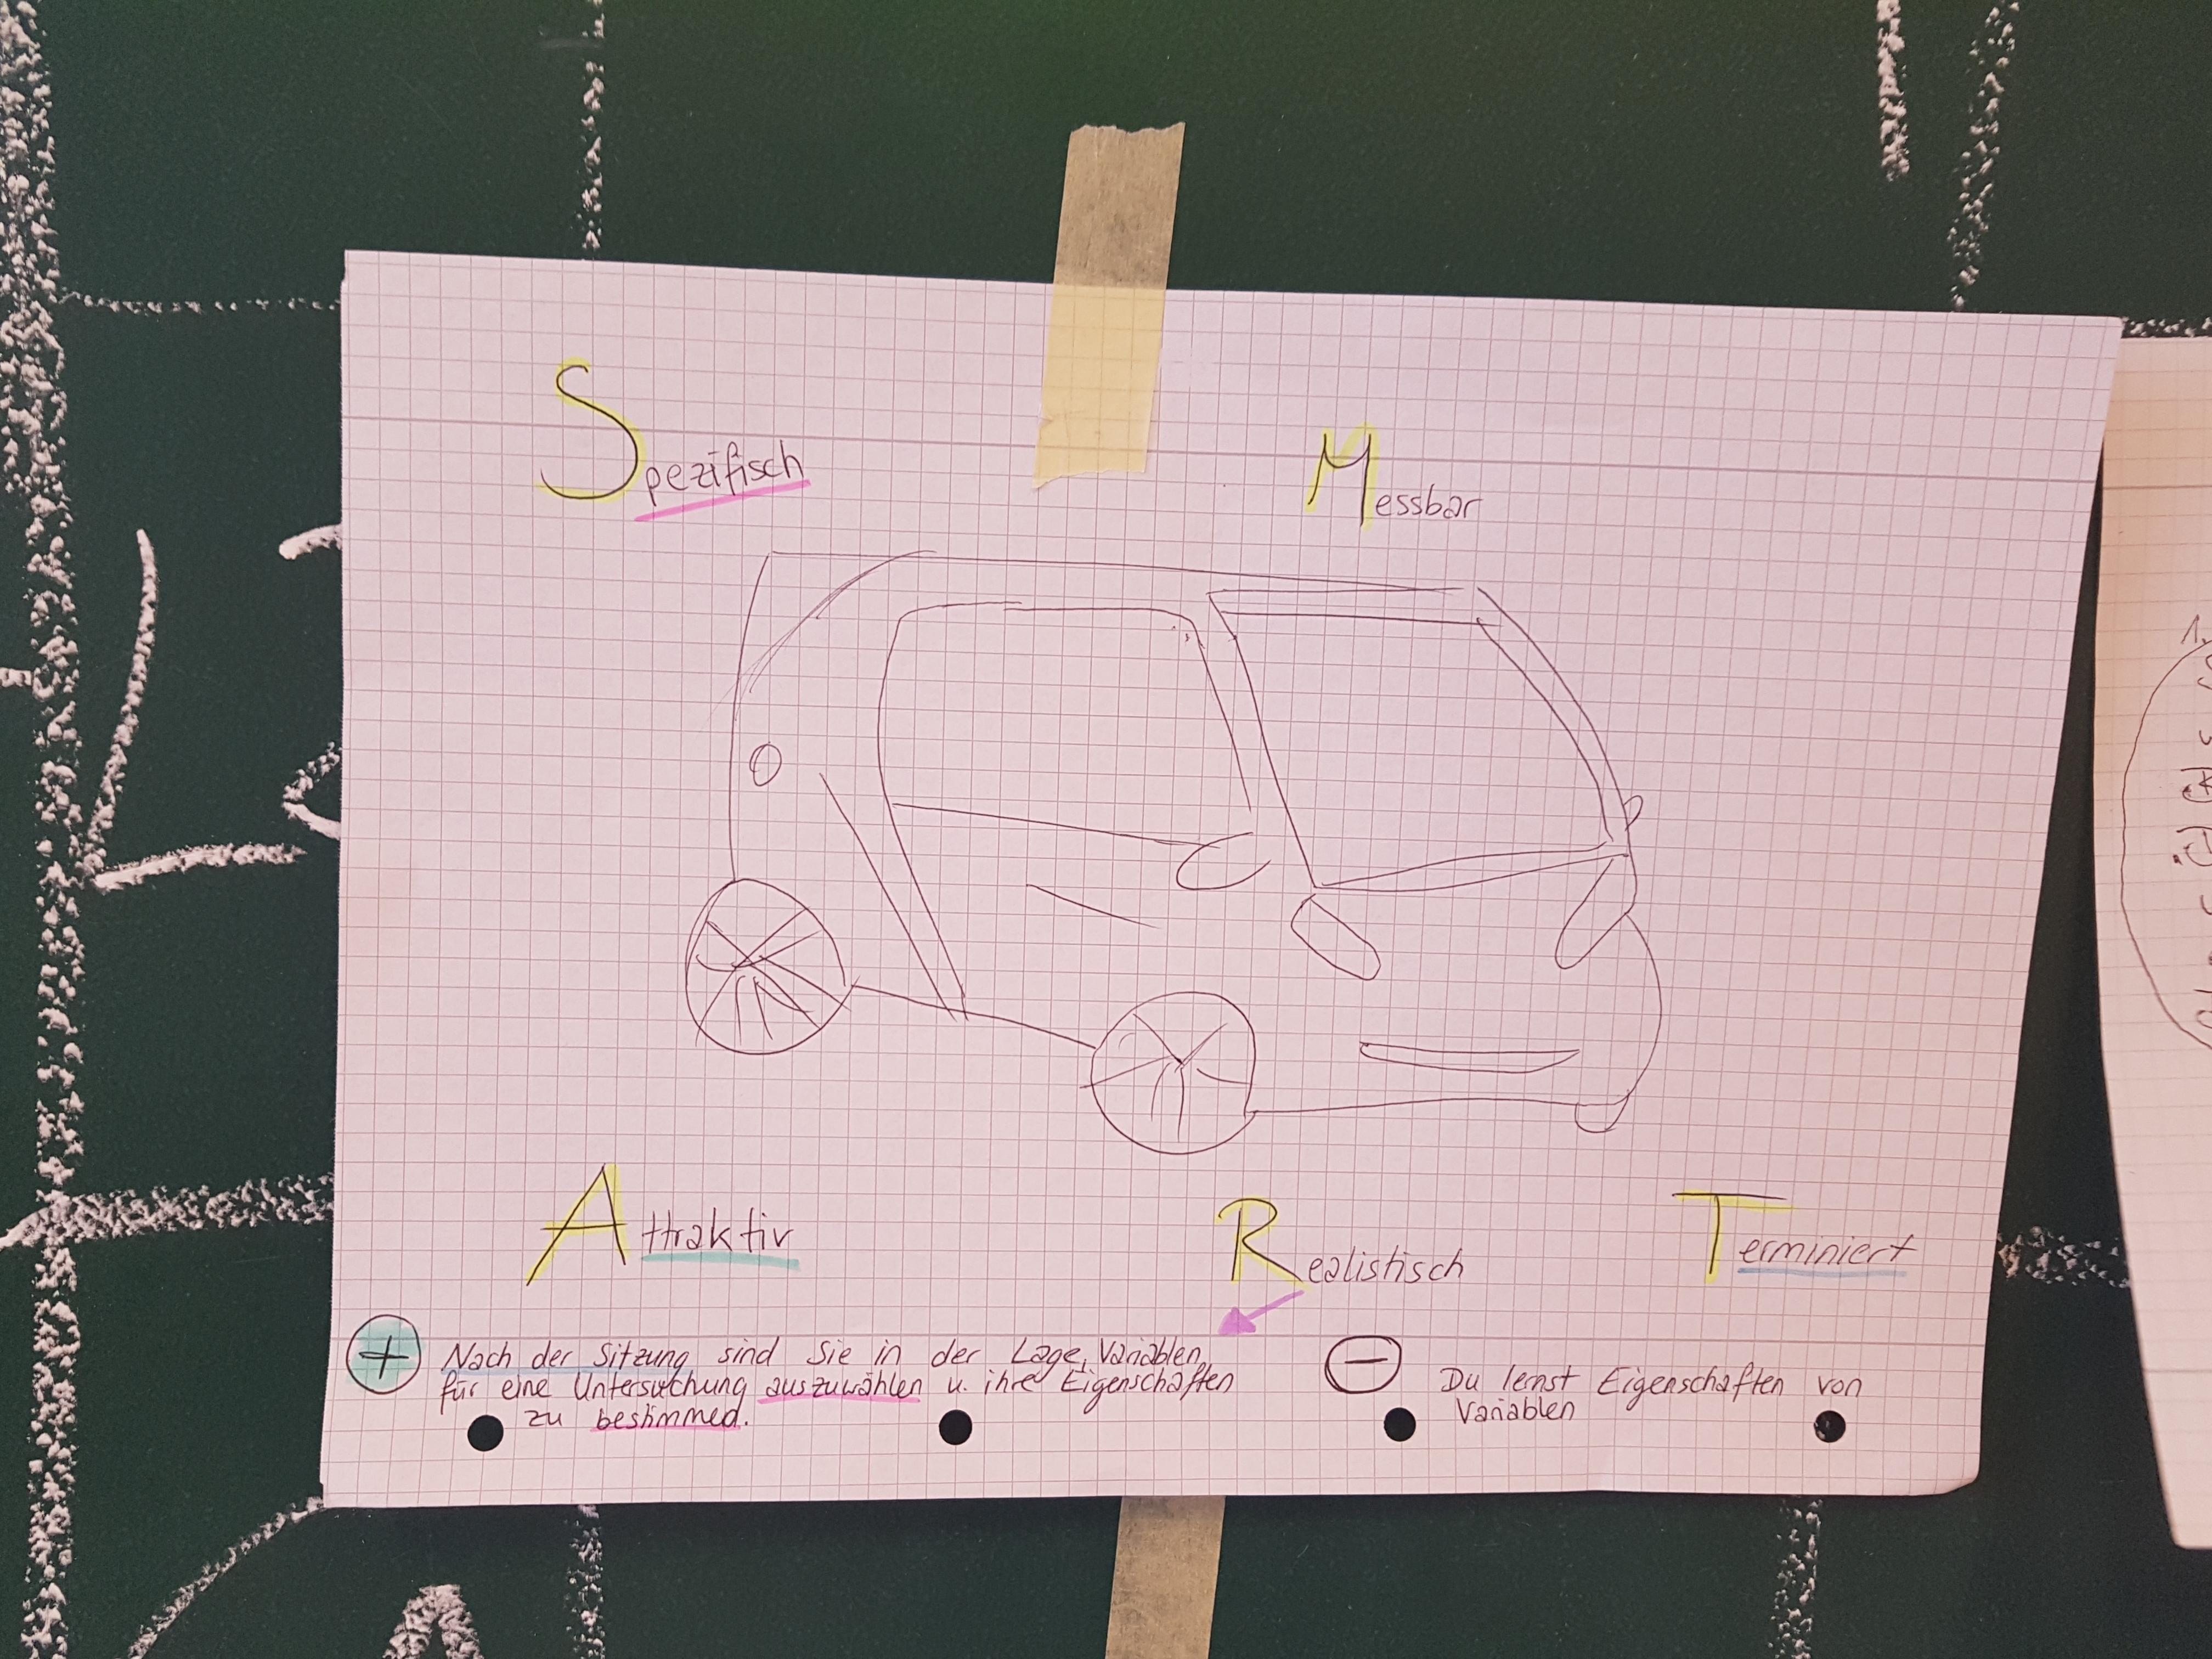 Spezifisch
Messbar
Attraktiv
Realistisch
Terminiert
+ Nach der Sitzung sind Sie in der Lage, Variablen
für eine Untersuchung auszuwählen u. ihre Eigenschaften
zu bestimmed.
− Du lernst Eigenschaften von
Variablen